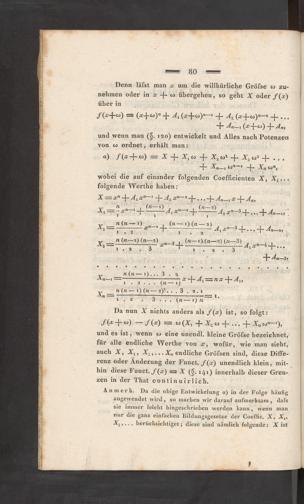 — 80 —
Denn läfst man x um die willkürliche Gröfse ω zu-
nehmen oder in x + ω übergehen, so geht X oder f(x)
über in
f(x+ω) = (x+ω)ⁿ + A₁(x+ω)ⁿ⁻¹ + A₂(x+ω)ⁿ⁻² + ...
+ Aₙ₋₁(x+ω) + Aₙ,
und wenn man (§. 120) entwickelt und Alles nach Potenzen
von ω ordnet, erhält man:
a) f(x+ω) = X + X₁ω + X₂ω² + X₃ω³ + ...
+ Xₙ₋₁ωⁿ⁻¹ + Xₙωⁿ,
wobei die auf einander folgenden Coefficienten X, X₁...
folgende Werthe haben:
X = xⁿ + A₁xⁿ⁻¹ + A₂xⁿ⁻² + ... + Aₙ₋₁x + Aₙ,
Da nun X nichts anders als f(x) ist, so folgt:
f(x+ω) − f(x) = ω(X₁ + X₂ω + ... + Xₙωⁿ⁻¹),
und es ist, wenn ω eine unendl. kleine Gröfse bezeichnet,
für alle endliche Werthe von x, wofür, wie man sieht,
auch X, X₁, X₂,...Xₙ endliche Gröfsen sind, diese Diffe-
renz oder Änderung der Funct. f(x) unendlich klein, mit-
hin diese Funct. f(x) = X (§. 141) innerhalb dieser Gren-
zen in der That continuirlich.
Anmerk. Da die obige Entwickelung a) in der Folge häufig
angewendet wird, so machen wir darauf aufmerksam, dafs
sie immer leicht hingeschrieben werden kann, wenn man
nur die ganz einfachen Bildungsgesetze der Coeffic. X, X₁,
X₂,... berücksichtiget; diese sind nämlich folgende: X ist